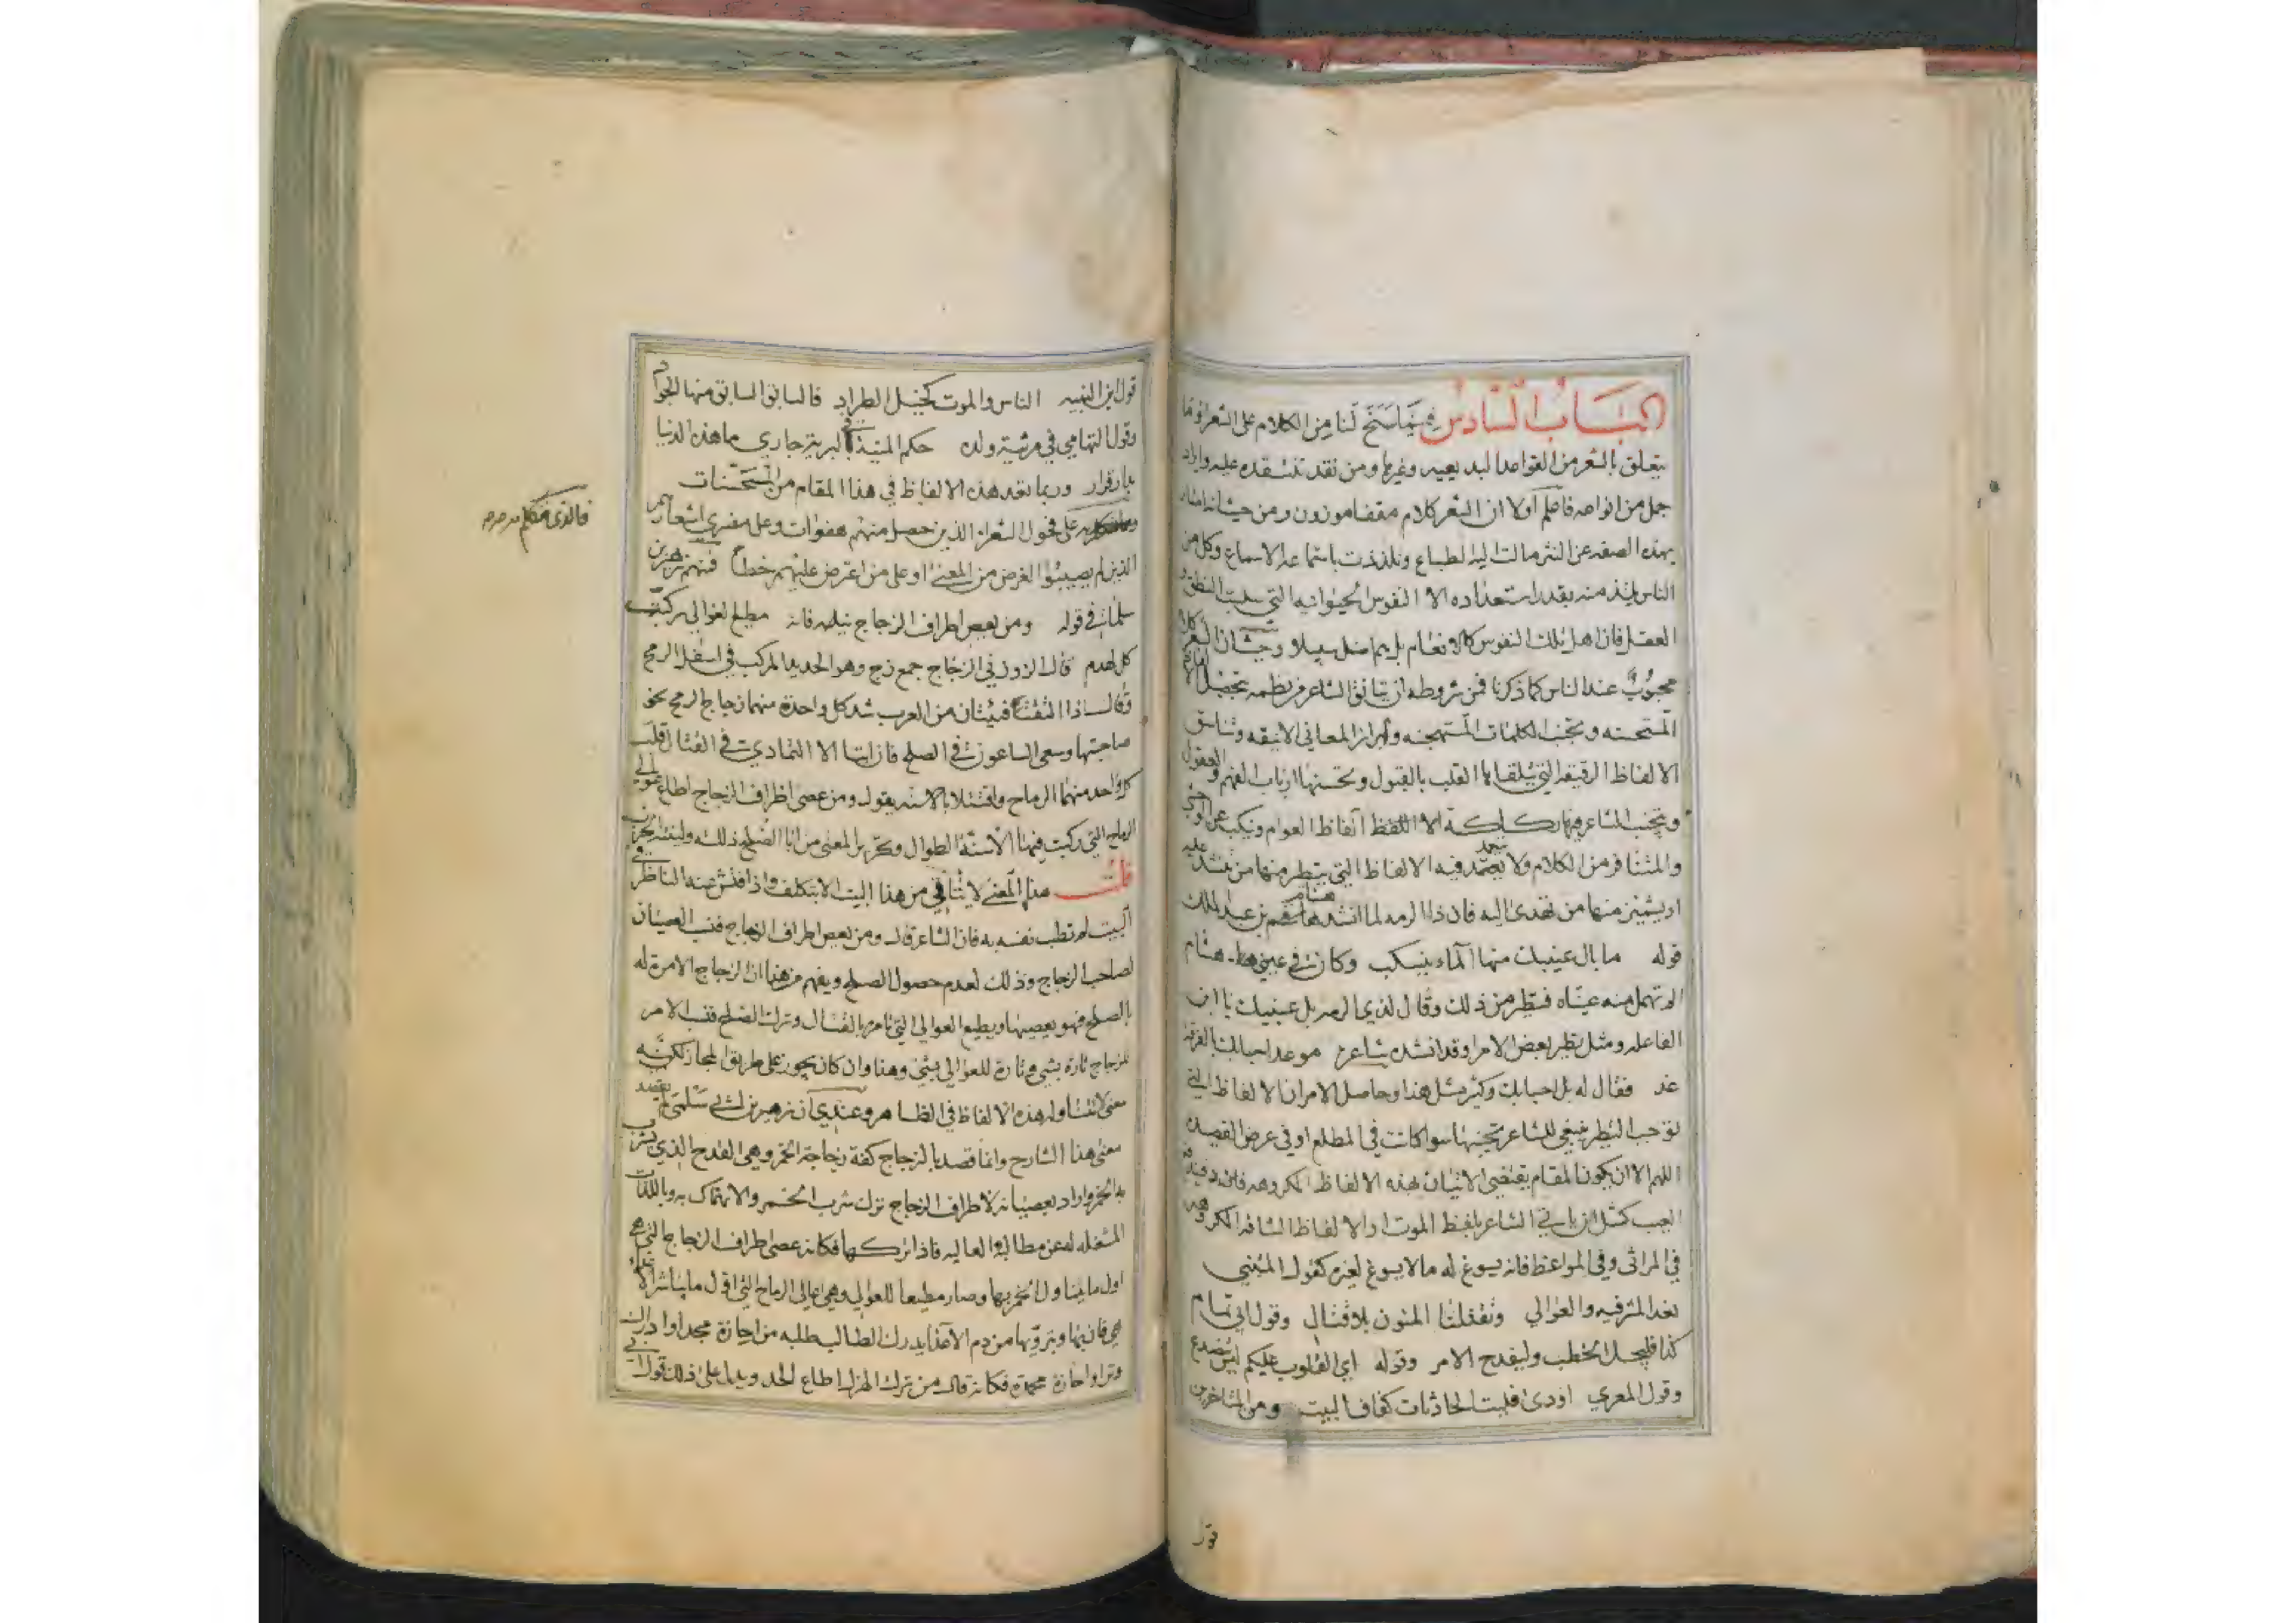 الباب السادس فيما سنح لنا من الكلام على الشعر وما
يتعلق بالشعر من القواعد البديعيه وغيرها ومن نقد ننتقده عليه وايراد
جمل من انواعه فاعلم اولا ان الشعر كلام مقفا موزون ومن حيث انه امتاز
بهذه الصفه عن النثر مالت اليه الطباع وتلذذت باستماعه الاسماع وكل من
الناس يلتذ منه بقدر استعداده الا النفوس الحيوانيه التي سلبت النطق و
العقل فان اهل تلك النفوس كالانعام بل هم اضل سبيلا وحيث ان الشعر كلام
محبوب عند الناس كما ذكرنا فمن شروطه ان يتانق الشاعر في نظمه بتحصيل
المستحسنه وتجنب الكلمات المستهجنه وابراز المعاني الانيقه وتناسق
الالفاظ الرقيقه التي يتلقاها القلب بالقبول ويحسنها ارباب الفهم والعقول
ويتجنب الشاعر فيها ركاكة اللفظ الفاظ العوام وينكب عن
والمتنافر من الكلام ولا يعتمد فيه الالفاظ التي يتطير منها من تنشد عليه
او يشمئز منها من تهدى اليه فان ذا الرمه لما انشد هشام بن عبد الملك
قوله ما بال عينيك منها الماء ينسكب وكان في عيني هشام
لا تهمل منه عيناه فتطير من ذلك وقال لذي الرمه بل عينيك يا ابن
الفاعله ومثل تطير بعض الامرا وقد انشده شاعر موعد احبابك بالفرقة
غد فقال له بل احبابك وكثير مثل هذا وحاصل الامر ان الالفاظ التي
توجب التطير ينبغي للشاعر تجنبها سوا كانت في المطلع او في عرض القصيده
اللهم الا ان يكون المقام يقتضي الاتيان بهذه الالفاظ المكروهه فانه
العيب كمثل ان ياتي الشاعر بلفظ الموت او الالفاظ الشاقه المكروهه
في المراثي وفي المواعظ فانه يسوغ له ما لا يسوغ لغيره كقول المتنبي
نعد المشرفيه والعوالي وتقتلنا المنون بلا قتال وقول ابي تمام
كذا فليجل الخطب وليفدح الامر وقوله اي القلوب عليكم ليس ينصدع
وقول المعري اودى فليت الحادثات كفاف البيت ومن المتاخرين
قول
قول ابن النبيه الناس والموت كخيل الطراد فالسابق السابق منها الجواد
وقول التهامي في مرثية ولده حكم المنية في البرية جاري ما هذه الدنيا
بدار قرار وربما تعد هذه الالفاظ في هذا المقام من المستحسنات
على فحول الشعراء الذين حصل منهم هفوات وعلى مفسري اشعارهم
الذين لم يصيبوا الغرض من المعنى او على من اعترض عليهم خطأ فمنهم زهير بن
سلمى في قوله ومن يعص اطراف الزجاج فانه مطيع العوالي ركبت
كل لهذم قال الزوزني الزجاج جمع زج وهو الحديد المركب في اسفل الرمح
وقال اذا التقتا فئتان من العرب سدد كل واحدة منهما زجاج الرمح نحو
صاحبتها وسعى الساعون في الصلح فان ابتا الا التمادي في القتال قلب
كل واحد منهما الرماح واقتتلا بالاسنه يقول ومن عصى اطراف الزجاج اطاع عوالي
الرماح التي ركبت فيها الاسنة الطوال وتحرير المعنى من ابا الصلح ذلله ولينته الحرب
قلت هذا المعنى لا يتاتى من هذا البيت الا بتكلف واذا فتش عنه الناظر في
البيت لم تطب نفسه به فان الشاعر قال ومن يعص اطراف الزجاج فنسب العصيان
لصاحب الزجاج وذلك لعدم حصول الصلح ويفهم من هذا ان الزجاج الامرة له
بالصلح فهو يعصيها ويطيع العوالي التي تامره بالقتال وترك الصلح فنسب الامر
للزجاج تارة بشي وتارة للعوالي بشي وهذا وان كان يجوز على طريق المجاز لكنه
معنى لا تتناوله هذه الالفاظ في الظاهر وعندي ان زهير بن ابي سلمى لم يقصد
معنى هذا الشارح وانما قصد بالزجاج كفة زجاجة الخمر وهي القدح الذي يشرب
به الخمر واراد بعصيانه لاطراف الزجاج ترك شرب الخمر والانهماك به وباللذات
المشغله له عن مطالبه العاليه فاذا تركها فكانه عصى اطراف الزجاج التي هي
اول ما يتناول الخمر بها وصار مطيعا للعوالي وهي اعالي الرماح التي اول ما يباشر الاعداء
هي فان بها وبترويها من دم الاعدا يدرك الطالب طلبه من احازة مجد او ادراك
وتر او احازة محمدة فكانه قال من ترك الهزل اطاع الجد ويدل على ذلك قول
فالذي نتكلم به